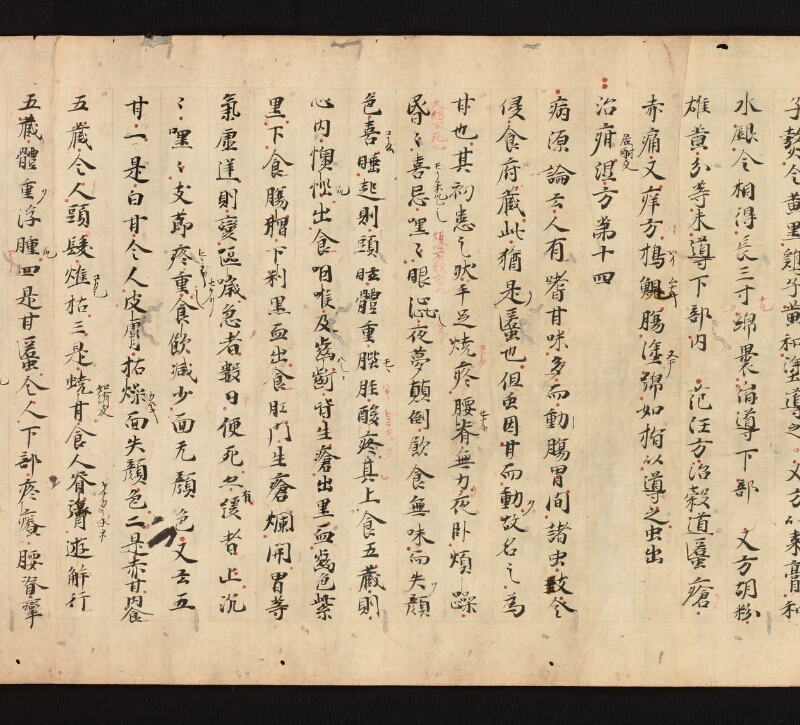 子熬令黄黒雞子黄和塗導之又方以朱膏和
水銀令相得長三寸綿裹宿導下部 又方胡粉
雄黄分等末導下部内 范汪方治穀道䘌瘡
赤痛又痒方搗鯛腸塗綿如指以導之虫出
治疳濕方第十四
病源論云人有嗜甘味多而動腸胃間諸虫致令
侵食府蔵此猶是䘌也但虫因甘而動故名之為
甘也其初患之状手足焼疼腰脊無力夜卧煩躁
昏〻喜忌嘿〻眼澁夜夢顛倒飲食無味而失顔
色喜睡起則頭眩體重䏶胜酸疼其上食五蔵則
心内懊㤿出食咽喉及齒齗皆生瘡出黒血齒色紫
黒下食腸䐜下利黒血出食肛門生瘡爛開胃等
氣虚逆則變嘔噦急者數日便死亦緩者止沉
〻嘿〻支節疼重食飲減少面无顔色又云五
甘一是白甘令人皮膚枯燥而失顔色二是赤甘内食
五蔵令人頭髪燋枯三是蟯甘食人脊膂遊觧行
五蔵體重浮腫四是甘䘌令人下部疼癢腰脊攣